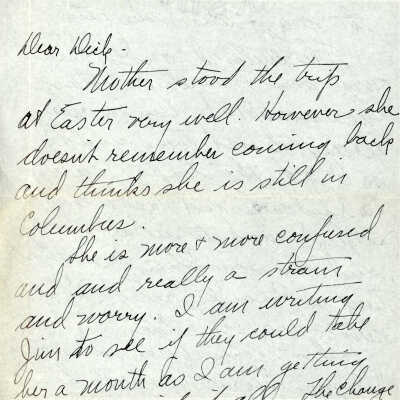 Dear Dick -
Mother stood the trip
at Easter very well. However she
doesn't remember coming back
and thinks she is still in
Columbus.
She is more & more confused
and and really a strain
and worry. I am writing
Jim to see if they could take
her a month as I am getting
it all. The change